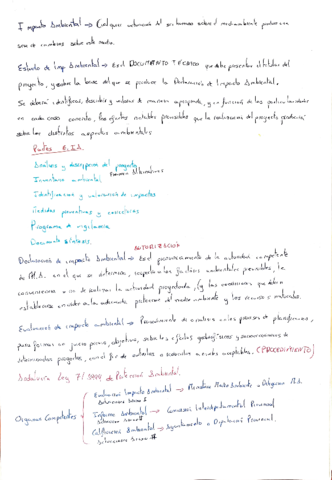 Impacto Ambiental → Cualquier alteración del ser humano sobre el medioambiente produce una
serie de cambios sobre este medio.
Estudio de Imp. Ambiental → Es el DOCUMENTO TÉCNICO que debe presentar el titular del
proyecto, y sobre la base del que se produce la Declaración de Impacto Ambiental.
Se deberá identificar, describir y valorar de manera apropiada, y en función de las particularidades
en cada caso concreto, los efectos notables previsibles que la realización del proyecto produciría
sobre los distintos aspectos ambientales
Partes E.I.A.
Análisis y descripción del proyecto
Examen Alternativas
Inventario ambiental
Identificación y valoración de impactos
Medidas preventivas y correctoras
Programa de vigilancia
Documento Síntesis.
AUTORIZACIÓN
Declaración de impacto Ambiental → Es el pronunciamiento de la autoridad competente
de M.A. en el que se determina, respecto a los factores ambientales previsibles, la
conveniencia o no de realizar la actividad proyectada, y las condiciones que deben
establecerse en orden a la adecuada protección del medio ambiente y los recursos naturales.
Evaluación de impacto ambiental → Procedimiento
para formar un juicio previo, objetivo, sobre los efectos
determinados proyectos, con el fin de
(PROCEDIMIENTO)
Andalucía Ley 7/1994 de Protección Ambiental.
Organos Competentes
Evaluación Impacto Ambiental →
Informe Ambiental → Comisión Interdepartamental Provincial
Calificación Ambiental → Ayuntamiento o Diputación Provincial.